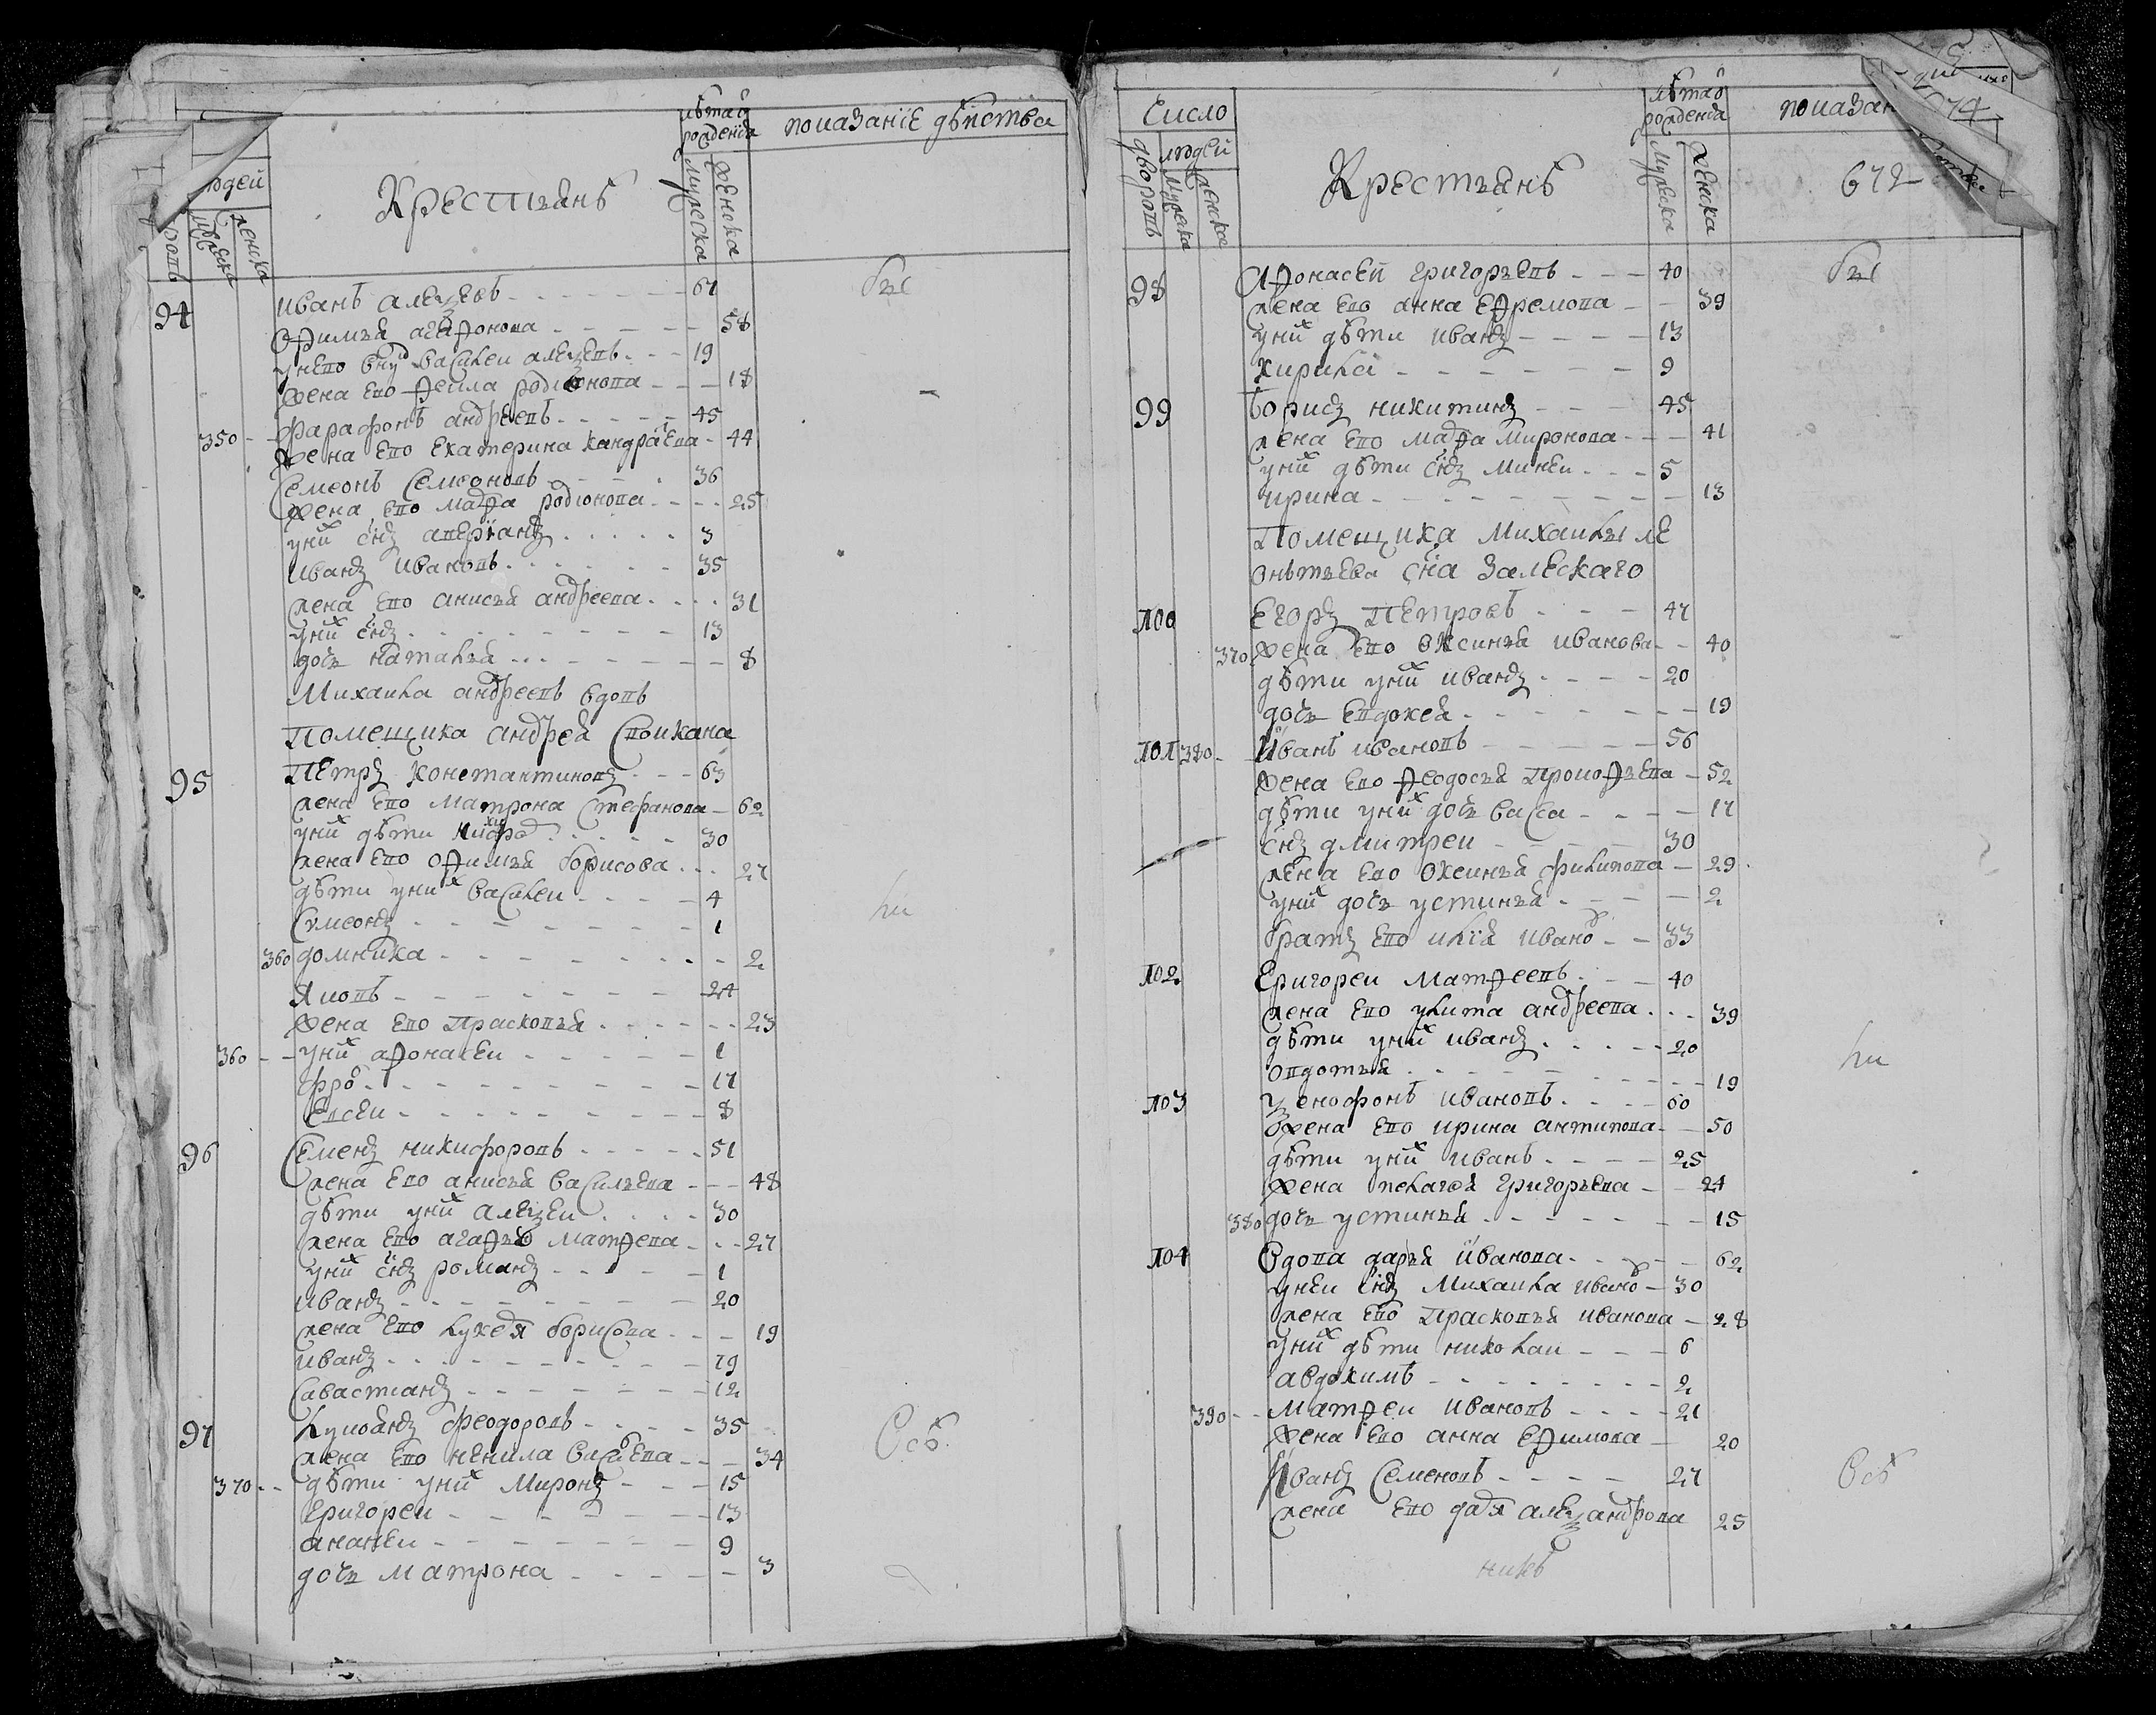 людей
мужеска
женска
Крестьянъ
лѣта ѿ
рожденїя
мужеска
женска
показанїе дѣйства
94 иванъ алеѯеевъ 61
офимья агафонова 58
унево внукъ василеи алеѯеевъ 19
жена ево феѡкла родиѡнова 18
фарафонъ андреевъ 45
350 жена ево екатерина кандратева 44
семеонъ семеоновъ 36
жена ево марфа родионова 25
унихъ снъ аверїанъ 3
иванъ ивановъ 35
жена ево анисья андреева 31
унихъ снъ 13
дочь наталья 8
михаила андреевъ вдовъ
помещика андрея
95 петръ константиновъ 63
жена ево матрона стефанова 62
унихъ дѣти никифоръ 30
жена ево офимья борисова 27
дѣти унихъ василеи 4
симеонъ 1
360 домника 2
яковъ 24
жена ево прасковья 23
360 унихъ афонасеи 1
фролъ 17
евсеи 8
96 семенъ никифоровъ 51
жена ево анисья васильева 48
дѣти унихъ алеѯеи 30
жена ево агафья матфева 27
унихъ снъ романъ 1
иванъ 20
жена ево лукерья борисова 19
иванъ 19
савастианъ 12
97 лукоянъ феодоровъ 35
жена ево ненила 34
370 дѣти унихъ миронъ 15
григореи 13
ананеи 9
дочь матрона 3
число
дворовъ
людей
мужеска
женска
Крестьянъ
лѣта ѿ
рожденїя
мужеска
женска
показан
74
672
98 афонасей григорьевъ 40
жена ево анна ефремова 39
унихъ дѣти иванъ 13
кирила 9
99 борисъ никитинъ 45
жена ево марфа миронова 41
унихъ дѣти снъ минеи 5
ирина 13
помещика михаилы ле
онтьева сна залескаго
100 егоръ петровъ 47
370 жена ево оксинья иванова 40
дѣти унихъ иванъ 20
дочь евдокея 19
101 380 иванъ ивановъ 56
жена ево феодосья прокофьева 52
дѣти унихъ дочь васса 17
снъ дмитреи 30
жена ево оксинья филипова 29
унихъ дочь устинья 2
братъ ево илїя ивановъ 33
102 григореи матфеевъ 40
жена ево улита андреева 39
дѣти унихъ иванъ 20
овдотья 19
103 ѯенофонъ ивановъ 60
жена ево ирина антипова 50
дѣти унихъ иванъ 25
жена пелагея григорьева 24
380 дочь устинья 15
104 вдова дарья иванова 62
унеи снъ михаила ивановъ 30
жена ево прасковья иванова 28
унихъ дѣти николаи 6
авдокимъ 2
390 матфеи ивановъ 21
жена ево анна ефимова 20
иванъ семеновъ 27
жена ево дарья алеѯандрова 25